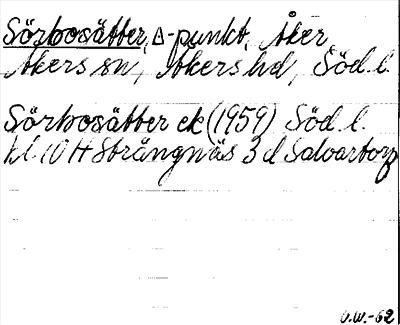 Sörbosätter, ∆-punkt, Åker
Åkers sn, Åkers hd, Söd.l.
Sörbosätter ek (1959) Söd.l.
bl. 10 H Strängnäs 3 d Salvartorp
O.W.-62